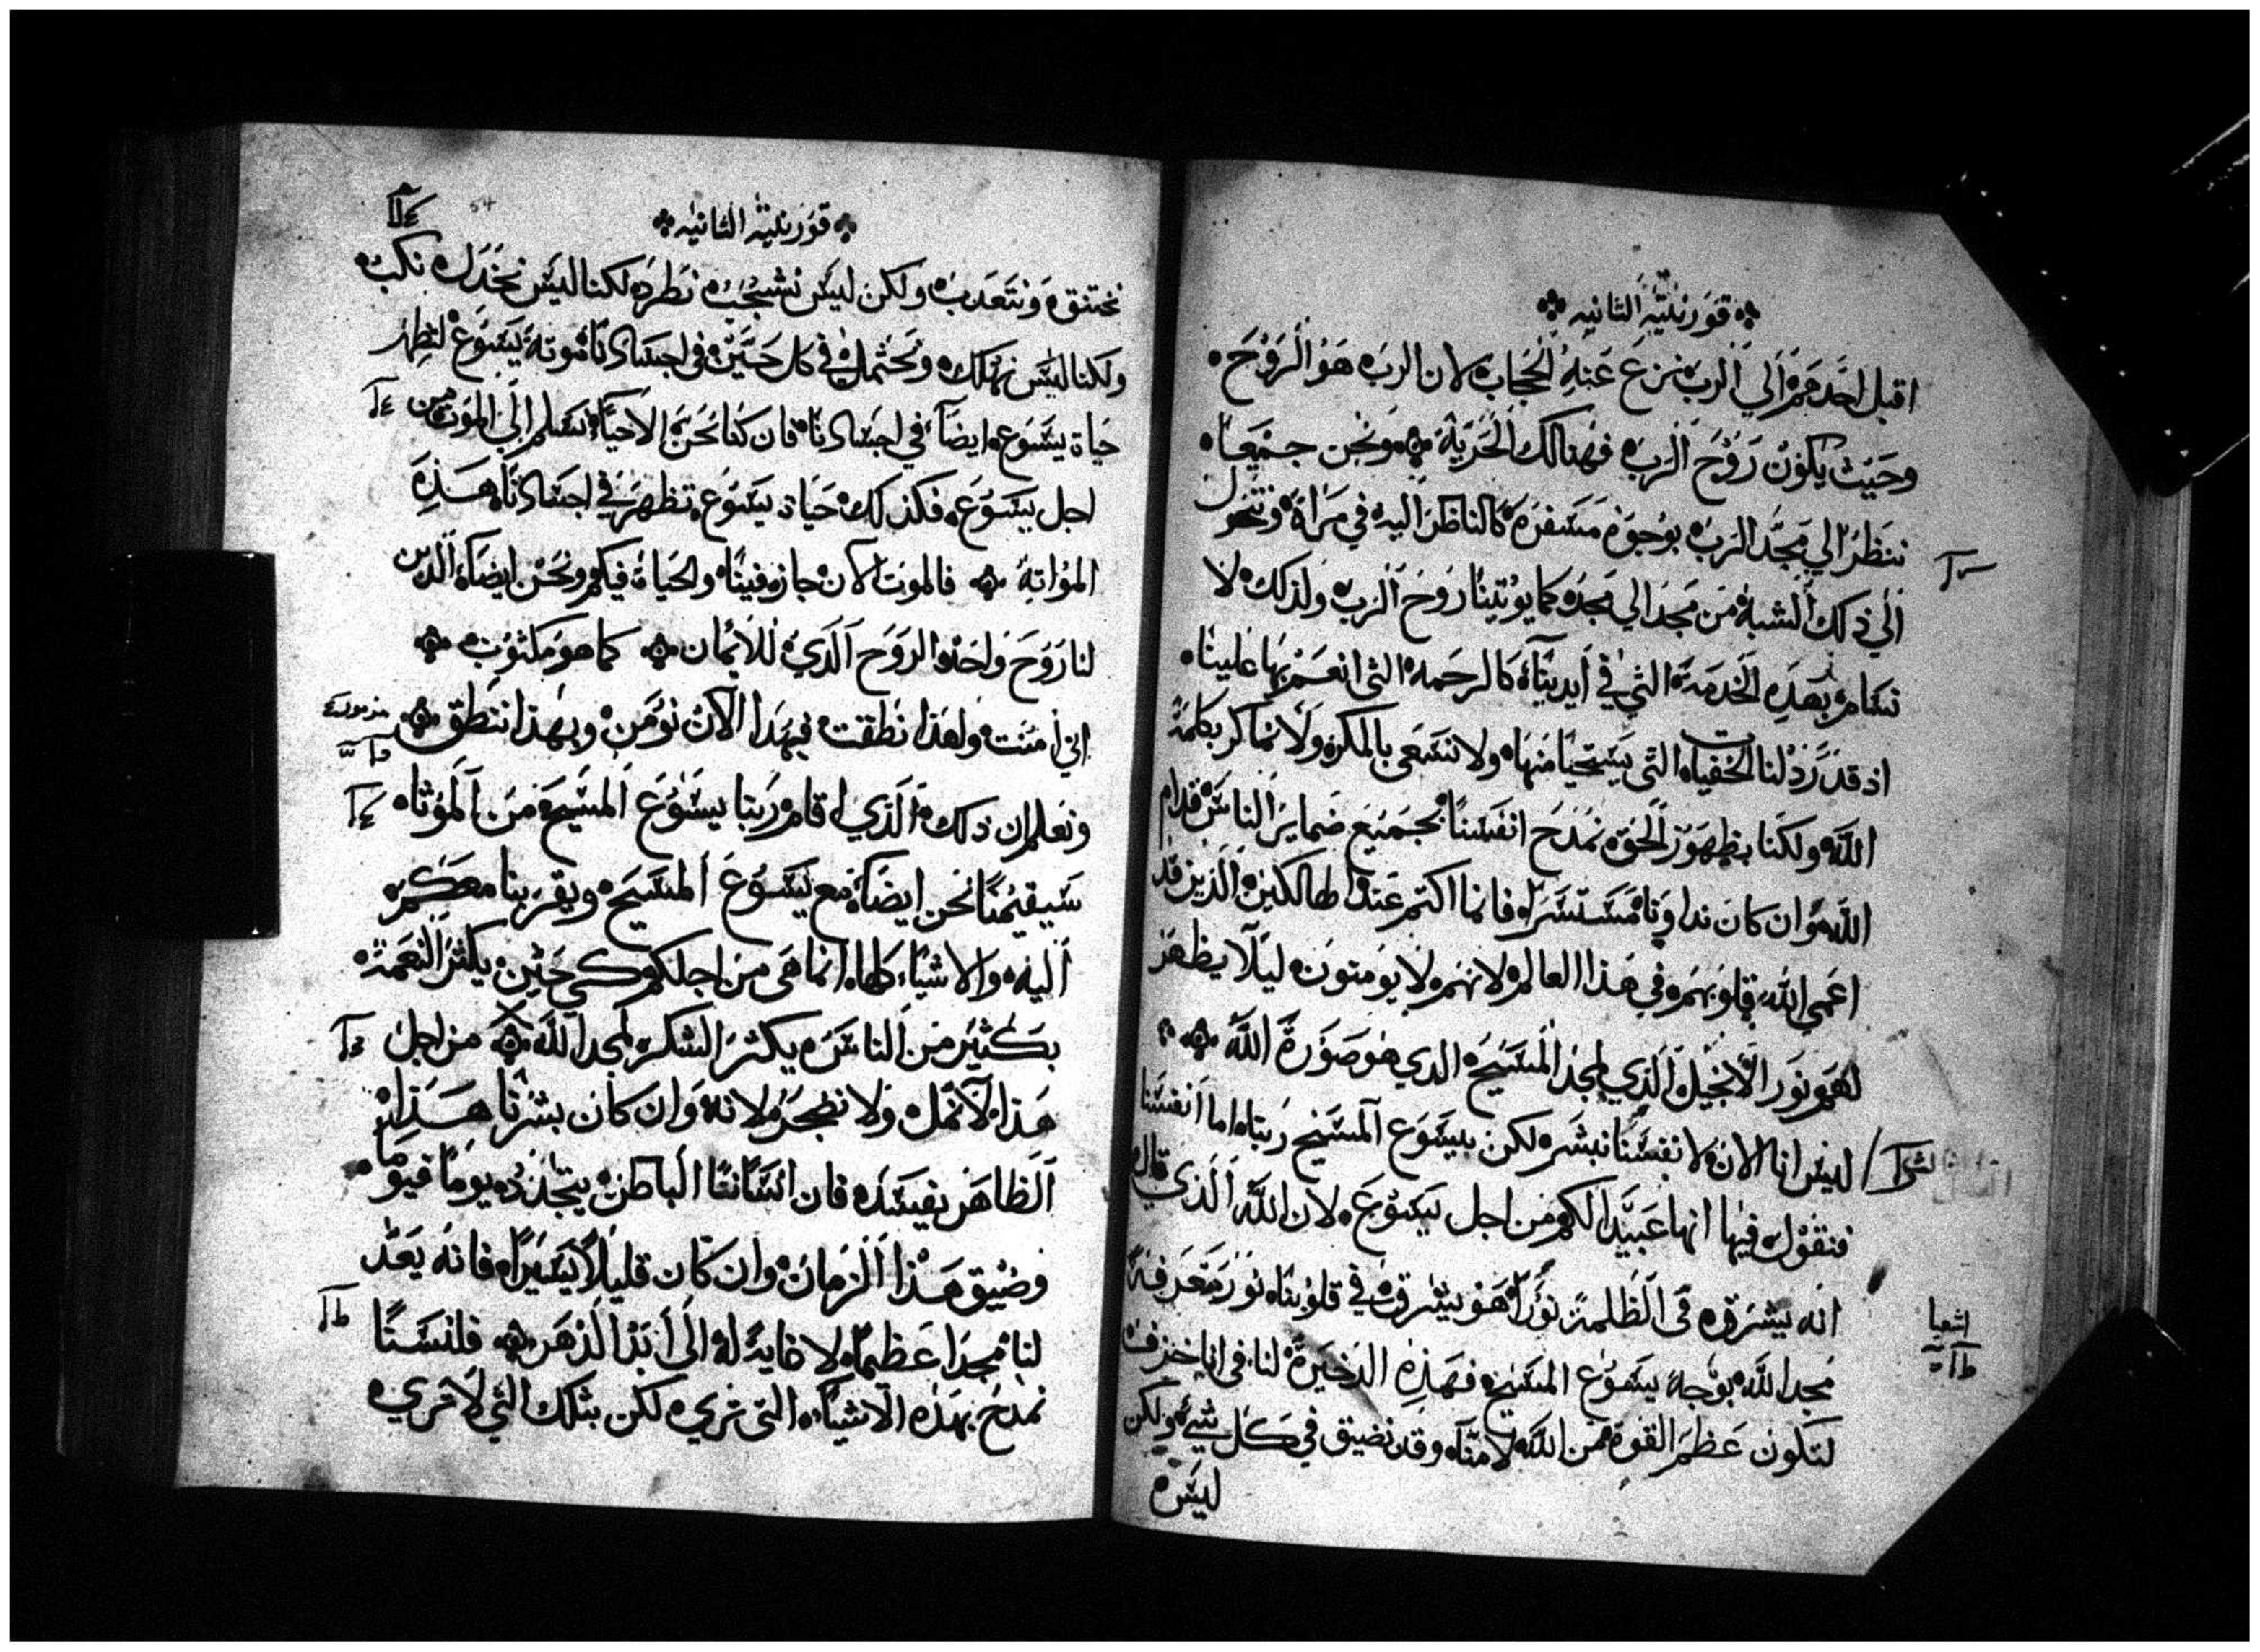 قورنثية الثانيه
اقبل احدهم الي الرب نزع عنه الحجاب لان الرب هو الروح
وحيث يكون روح الرب فهنالك الحرية ونحن جميعا
ننظر الي مجد الرب بوجوه مسفره كالناظر اليه في مراة ونتحول
الي ذلك الشبه من مجد الي مجد كما يوتينا روح الرب ولذلك لا
نسام بهذه الخدمة التي في أيدينا كالرحمة التي انعم بها علينا
اذ قد رذلنا الخفيات التي يستحيا منها ولا نسعى بالمكر ولا نماكر بكلمة
الله ولكنا بظهور الحق نمدح انفسنا بجميع ضماير الناس قدام
الله وان كان نداونا مستسرا فانما اكتتم عند الهالكين الذين قد
اعمي الله قلوبهم في هذا العالم لانهم لا يومنون ليلا يظهر
لهم نور الانجيل الذي لمجد المسيح الدي هو صورة الله
ليس انا الان لانفسنا نبشر لكن بيسوع المسيح ربنا اما انفسنا
فنقول فيها انها عبيدا لكم من اجل يسوع لان الله الذي قال
انه يشرق في الظلمة نورا هو يشرق في قلوبنا نور معرفة
مجد الله بوجه يسوع المسيح فهذه الدخيرة لنا في انا خزف
لتكون عظم القوة من الله لا منا وقد نضيق في كل شي ولكن
ليس
اشعيا
قورنثية الثانيه
54
نختنق ونتعدب ولكن ليس نشجب نطرد لكنا ليس نخدل نكب
ولكنا ليس نهلك ونحتمل في كل حين في اجسادنا موتة يسوع لتظهر
حياة يسوع ايضا في اجسادنا فان كنا نحن الاحيا نسلم الي الموت من
اجل يسوع فكذلك حياة يسوع تظهر في اجسادنا هذه
المواتة فالموت الان جاز فينا والحياة فيكم ونحن ايضا الدين
لنا روح واحد الروح الذي للايمان كما هو مكتوب
اني امنت ولهذا نطقت فبهدا الان نومن وبهذا ننطق
ونعلم ان ذلك الذي اقام ربنا يسوع المسيح من الموتا
سيقيمنا نحن ايضا مع يسوع المسيح ويقربنا معكم
اليه والاشيا كلها انما هي من اجلكم كي حين يكثر النعمة
بكثير من الناس يكثر الشكر لمجد الله من اجل
هذا لا نمل ولا نضجر لانه وان كان بشرنا هذا
الظاهر يفسد فان انساننا الباطن يتجدد يوما فيوما
وضيق هذا الزمان وان كان قليلا يسيرا فانه يعد
لنا مجدا عظيما لا غاية له الي أبد الدهر فلنسنا
نمدح بهذه الاشيا التي نري لكن بتلك التي لا نري